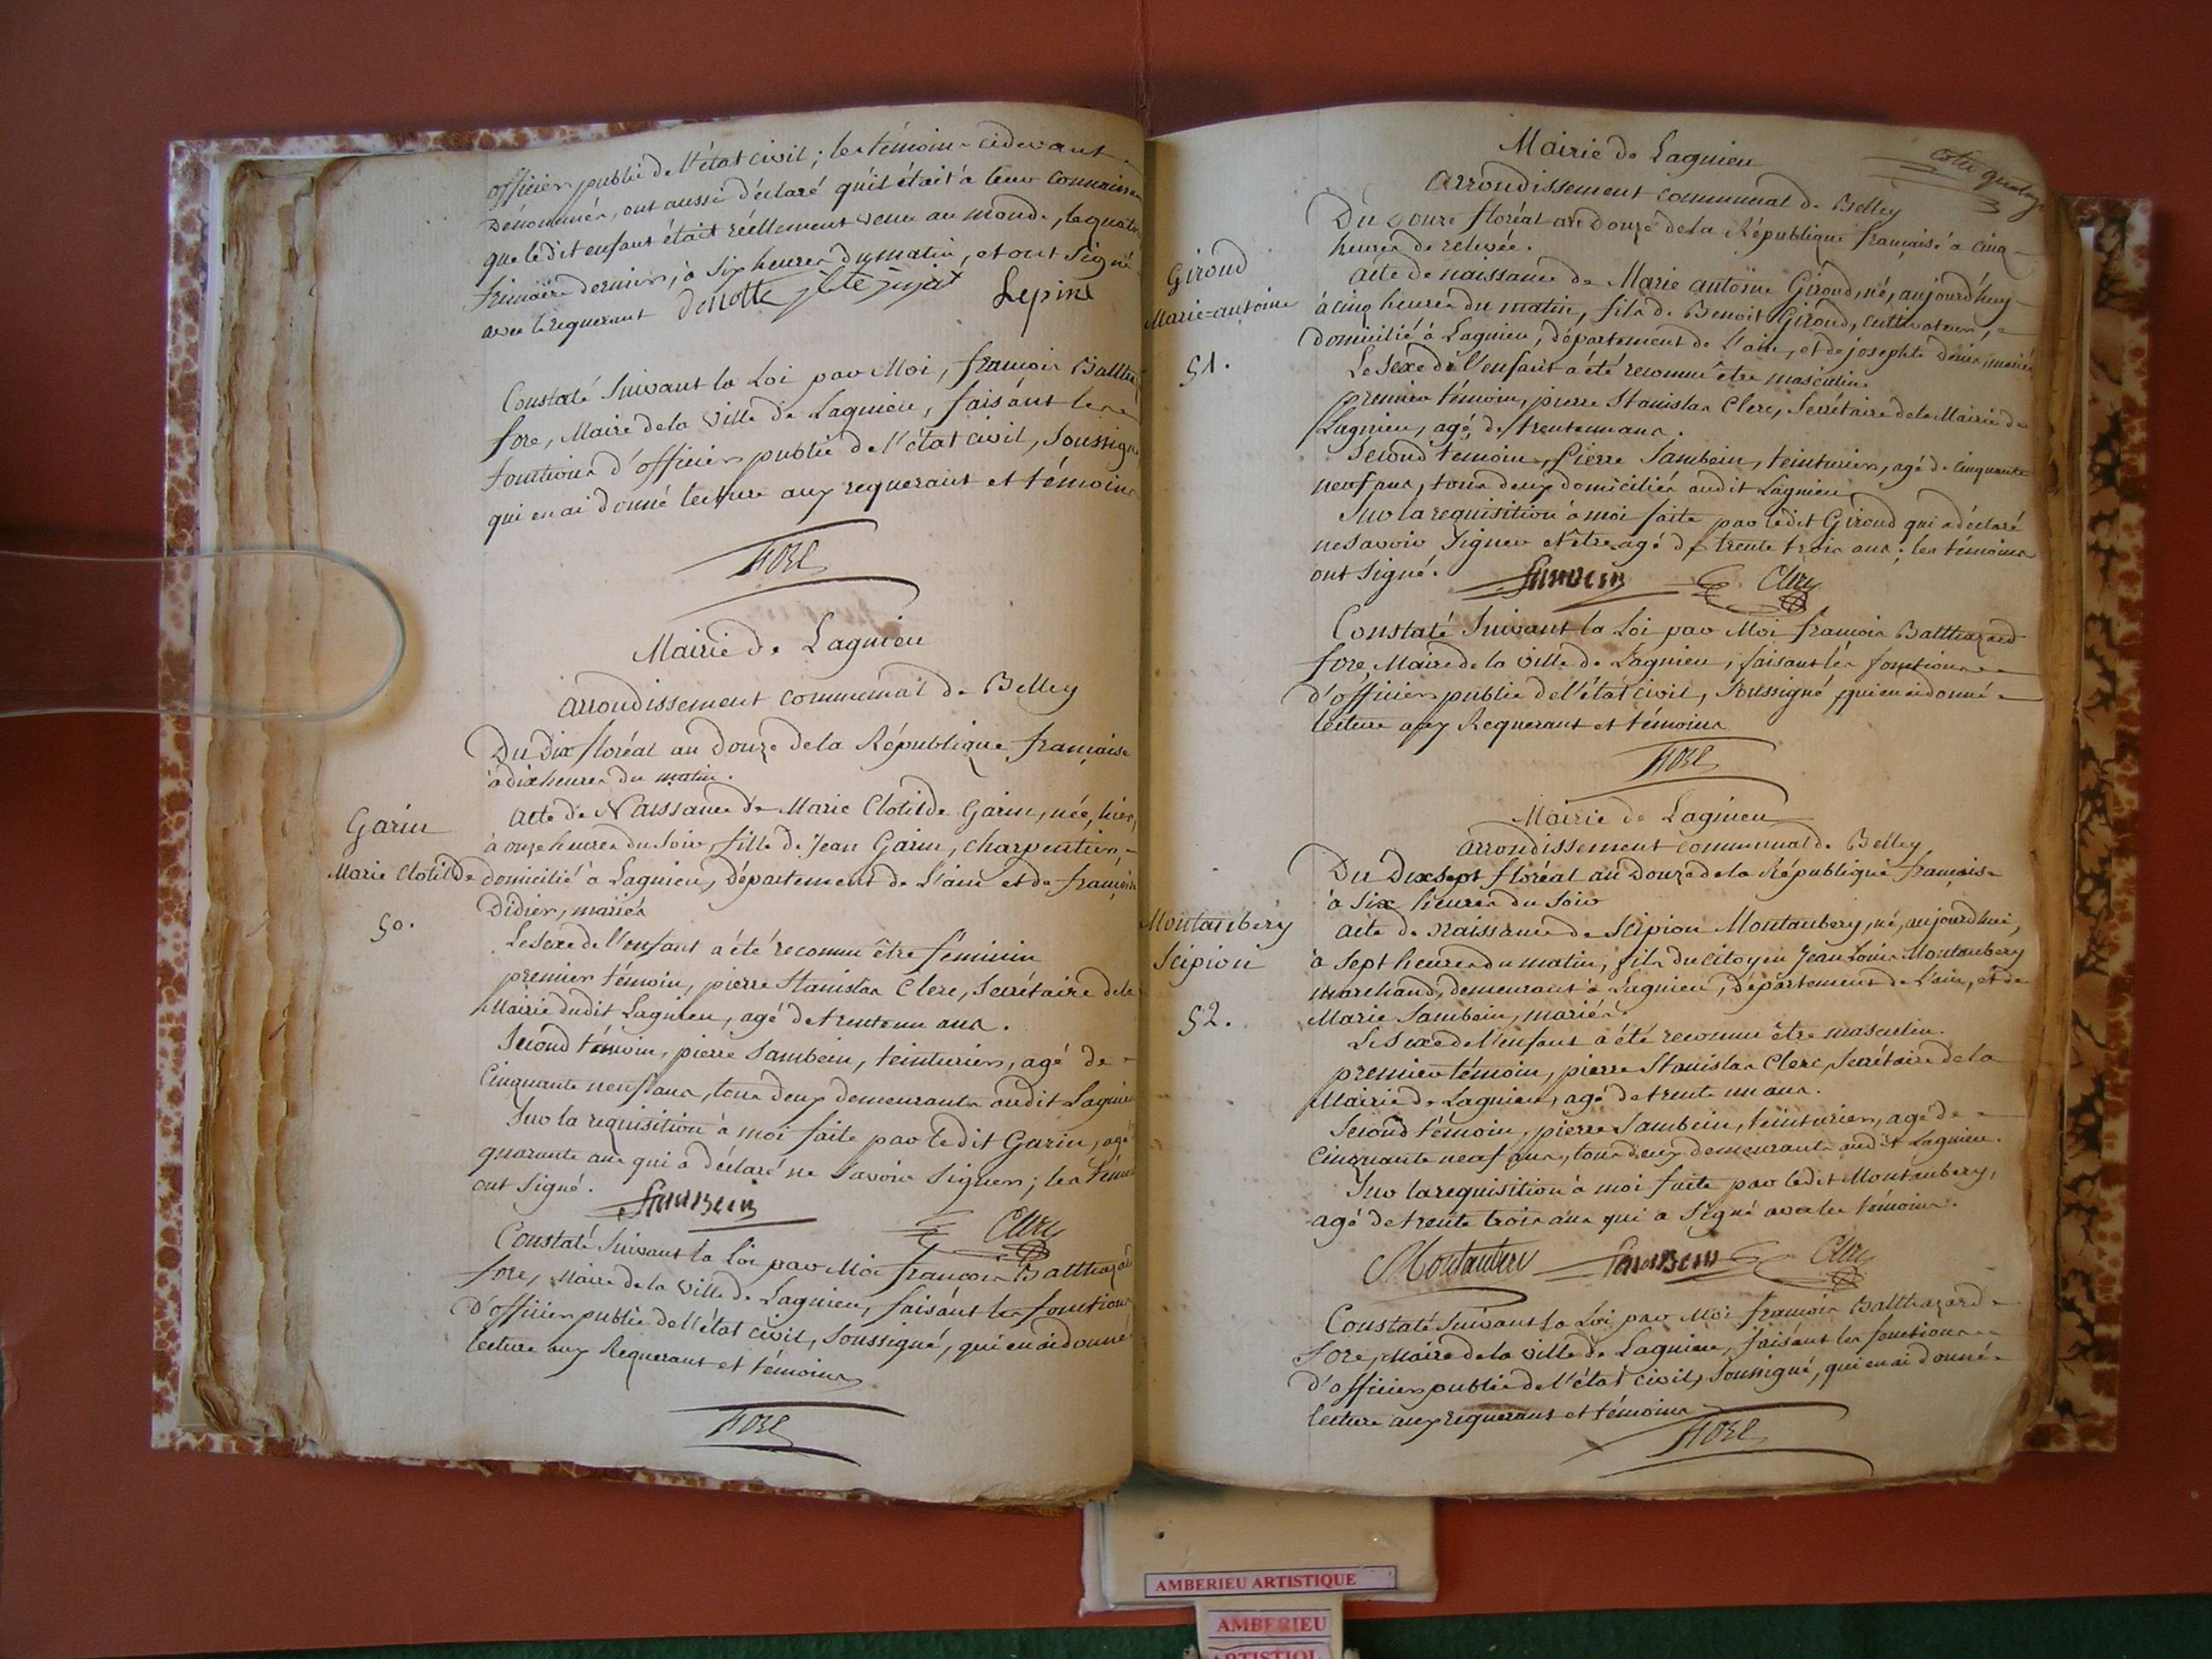 officier public de l'état civil; les témoins cidevant
Dénommés, ont aussi déclaré qu'il était à leur connaissan
que ledit enfant était réellement venu au monde, le quatre
frimaire dernier, à six heures du matin, et ont Signé
avec le requerant
Lepine
Constaté Suivant la Loi par Moi, françois Balthaz
fore, Maire dela ville de Lagnieu, faisant les
fonctions d'officier public de l'état civil, Soussigné
qui en ai donné lecture aux requerant et témoins
FORE
Mairie de Lagnieu
arrondissement communal de Belley
Du Dix floréal an Douze dela République française
à dix heures du matin.
Garin
Marie Clotilde
50.
acte de Naissance de Marie Clotilde Garin, née, hier,
à onze heures du Soir, fille de Jean Garin, charpentier,
domicilié à Lagnieu, département de L'ain et de françoise
Didier, mariés
Le Sexe de l'enfant a été reconnu être féminin
premier témoin, pierre Stanislas Clerc, Secrétaire dela
Mairie dudit Lagnieu, agé de trenteun ans.
Second témoin, pierre Sambein, teinturier, agé de
Cinquante neuf ans, tous deux demeurants audit Lagnieu
Sur la requisition à moi faite par ledit Garin, agé
quarante ans qui a déclaré ne Savoir Signer; les témoi
ont Signé.
SAMBEIN Clerc
Constaté Suivant la Loi par Moi françois Balthazard
fore, Maire de la ville de Lagnieu, faisant les fonctions
D'officier public de l'état civil, Soussigné, qui en ai donné
lecture aux Requerant et témoins
FORE
cotté quatorze
Mairie de Lagnieu
arrondissement communal de Belley
Du Douze floréal an Douze dela République française à cinq
heures de relevée.
Girond
Marie=antoine
51.
acte de naissance de Marie antoine Girond, né, aujourd'huy
à cinq heures du matin, fils de Benoit Girond, cultivateur,
domicilié à Lagnieu, département de l'ain, et de josephte Denis, mariés
Le Sexe de l'enfant a été reconnu être masculin
premier témoin, pierre Stanislas Clerc, Secrétaire dela Mairie de
Lagnieu, agé de trenteun ans.
Second témoin, Pierre Sambein, teinturier, agé de Cinquante
neuf ans, tous deux domiciliés audit Lagnieu
Sur la requisition à moi faite par ledit Girond qui a déclaré
ne Savoir Signer et être agé de trente trois ans; les témoins
ont Signé.
SAMBEIN Clerc
Constaté Suivant la Loi par Moi françois Balthazard
fore, Maire de la ville de Lagnieu, faisant les fonctions
d'officier public de l'état civil, Soussigné, qui en ai donné
lecture aux Requerant et témoins
FORE
Mairie de Lagnieu
arrondissement communal de Belley
Du Dixsept floréal an Douze dela République française
à Six heures du Soir
Montanbery
Scipion
52.
acte de Naissance de Scipion Montanbery, né, aujourd'hui,
à Sept heures du matin, fils du Citoyen Jean Louis Montanbery
marchand, demeurant à Lagnieu, département de L'ain, et de
Marie Sambein, mariés.
Le Sexe de l'enfant a été reconnu être masculin.
premier témoin, pierre Stanislas Clerc, Secrétaire dela
Mairie de Lagnieu, agé de trente un ans.
Second témoin, pierre Sambein, teinturier, agé de
Cinquante neuf ans, tous deux demeurants audit Lagnieu.
Sur la requisition à moi faite par ledit Montanbery,
agé de trente trois ans qui a Signé avec les témoins.
Montanbery SAMBEIN Clerc
Constaté Suivant la Loi par Moi françois Balthazard
fore, Maire dela ville de Lagnieu, faisant les fonctions
D'officier public de l'état civil, Soussigné, qui en ai donné
lecture aux requerant et témoins
FORE
AMBERIEU ARTISTIQUE
AMBERIEU
ARTISTIQU